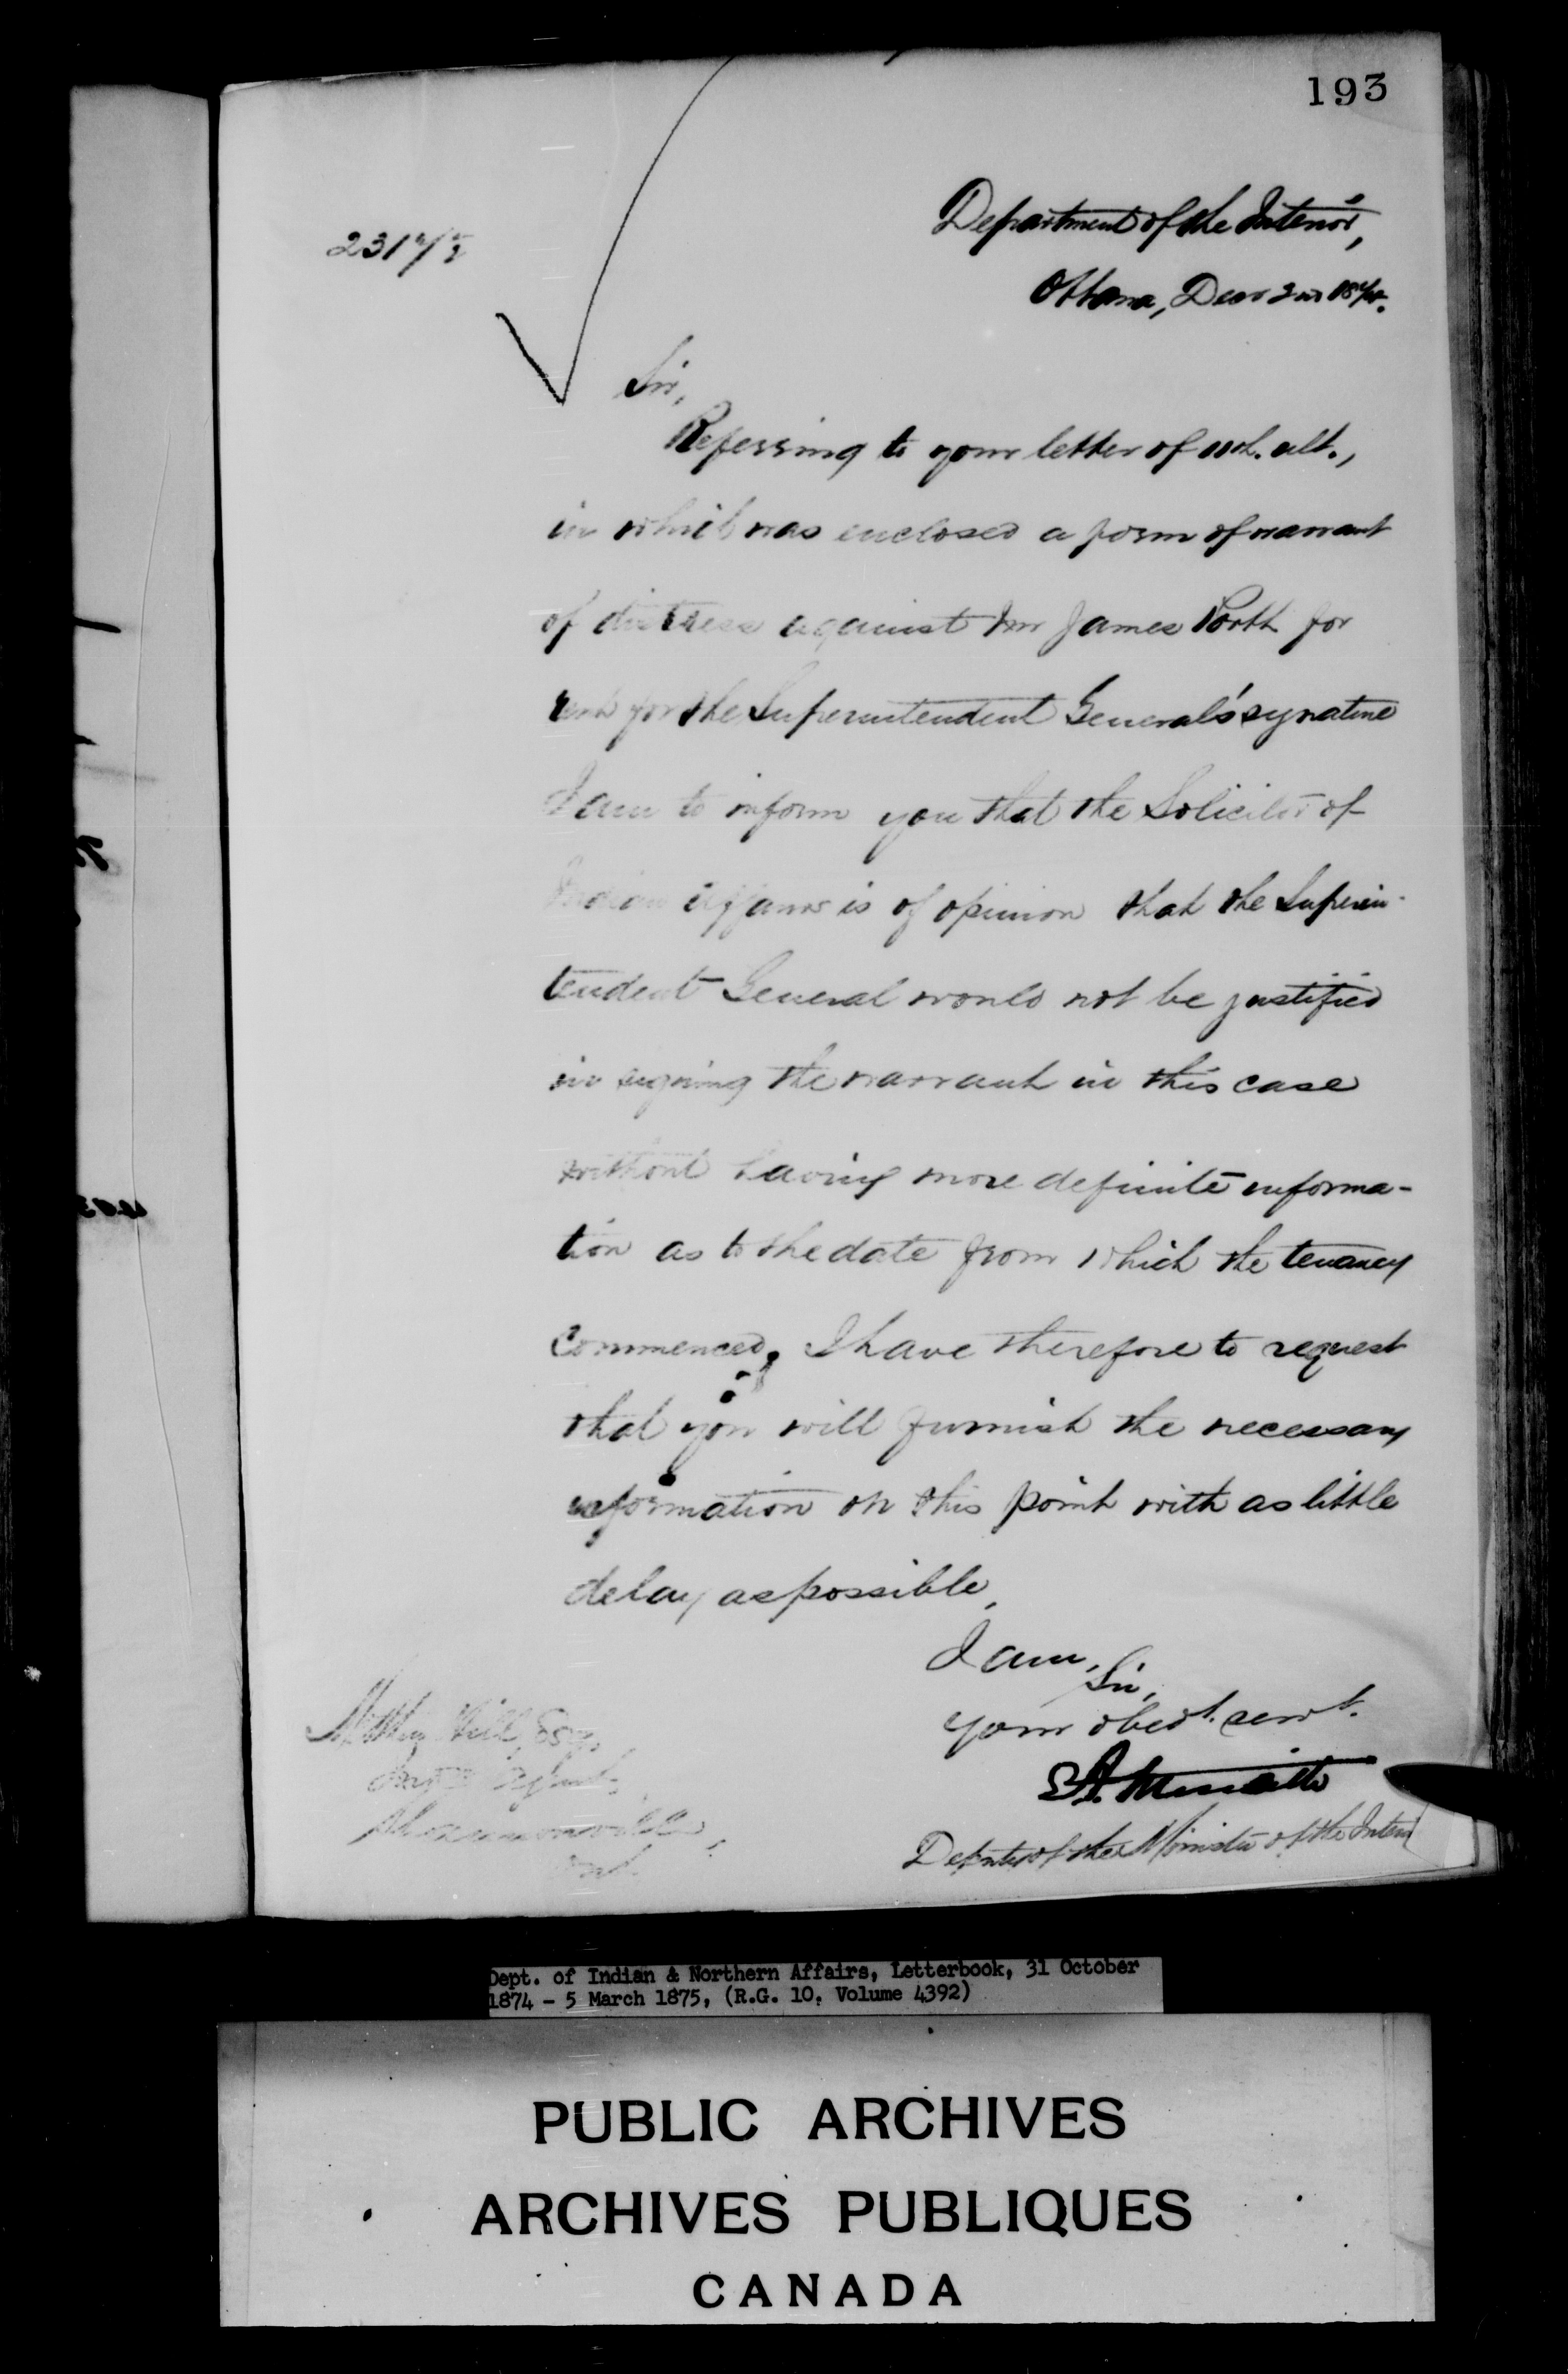 193
Department of the Interior,
Ottawa, Decr 2nd 1874.
Sir,
Referring to your letter of ult.,
in which was enclosed a form of warrant
of distress against Mr James Porth for
rent for the Superintendent General's signature
I am to inform you that the Solicitor of
Indian Affairs is of opinion that the Superin-
tendent General would not be justified
in signing the warrant in this case
without having more definite informa-
tion as to the date from which the tenancy
commenced. I have therefore to request
that you will furnish the necessary
information on this point with as little
delay as possible,
I am,
Sir,
your obedt. servt.
Deputy of the Minister of the Interior
Hill, Esq.
Dept. of Indian & Northern Affairs, Letterbook, 31 October
1874 - 5 March 1875, (R.G. 10, Volume 4392)
PUBLIC ARCHIVES
ARCHIVES PUBLIQUES
CANADA